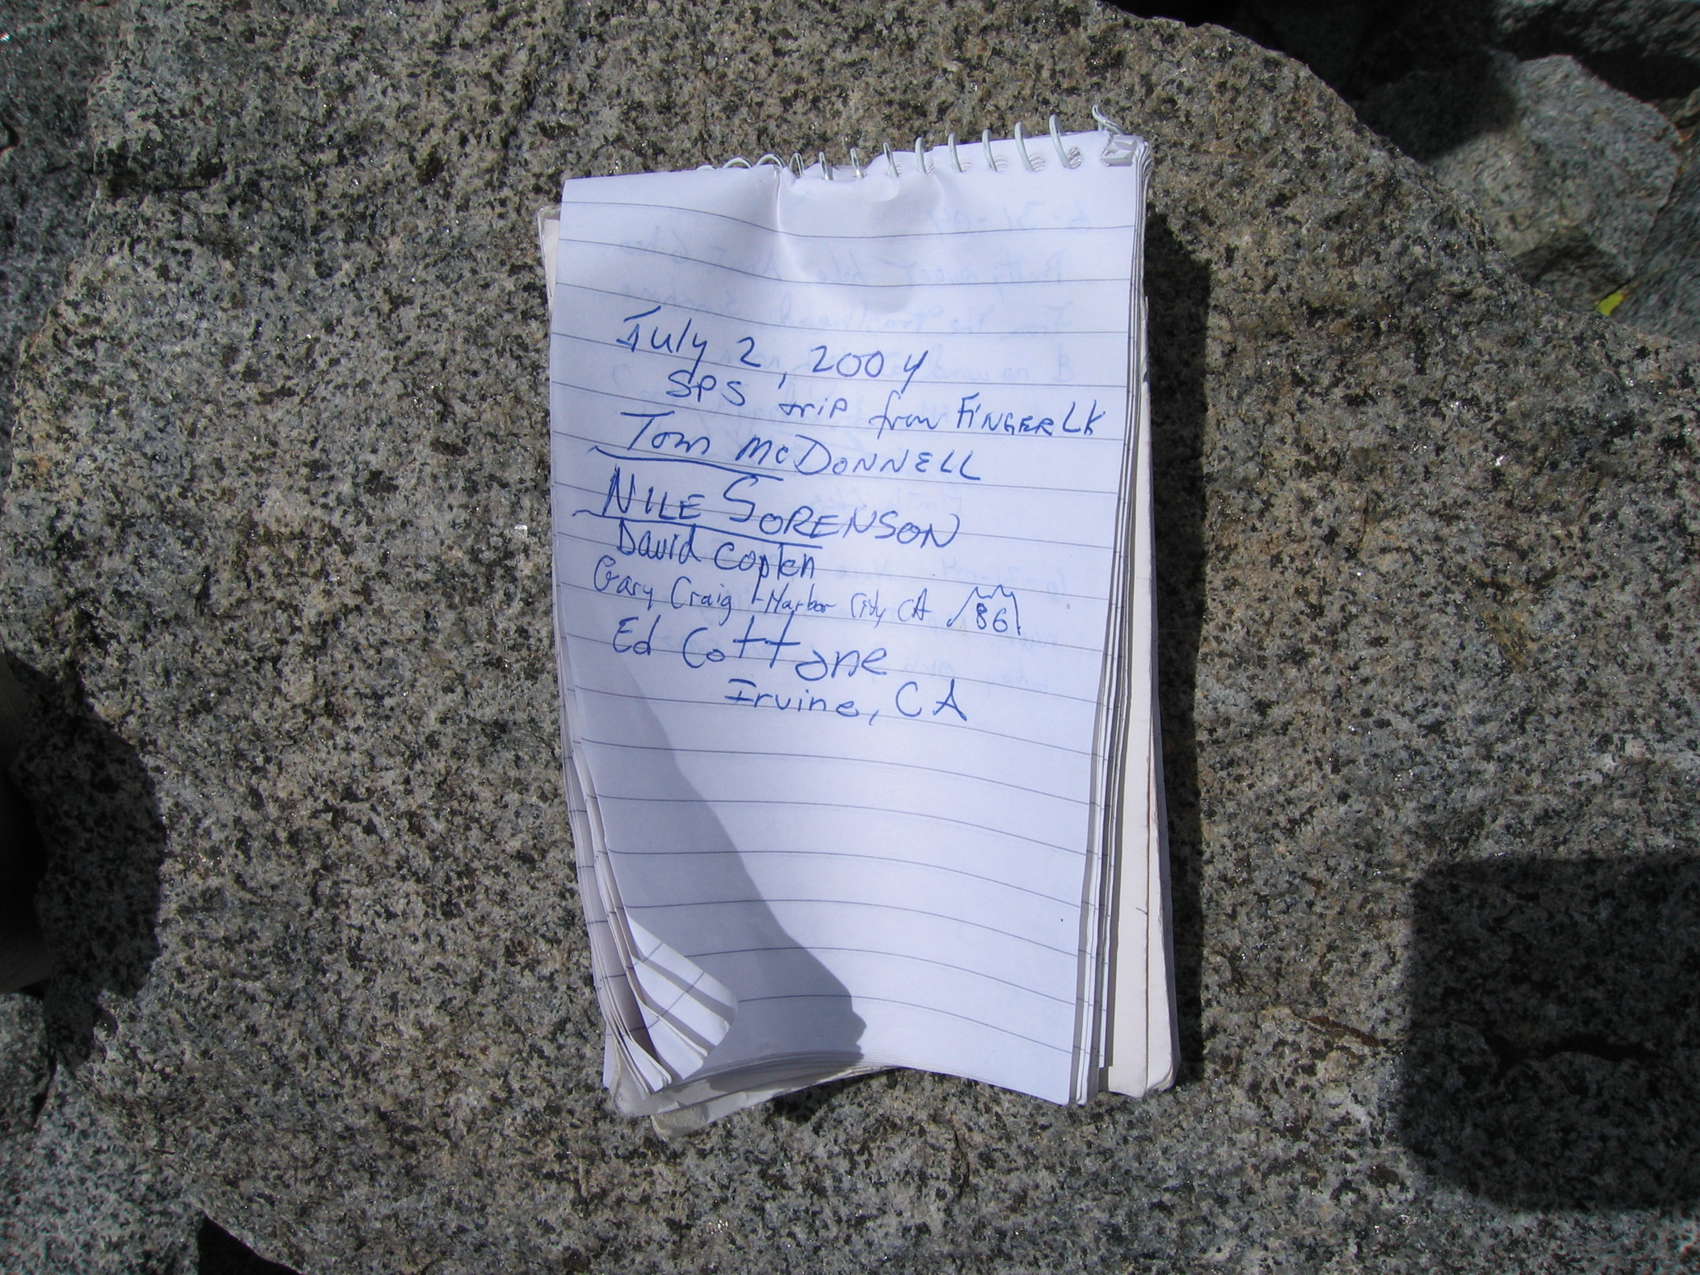 July 2, 2004
SPS trip from FINGER LK
Tom McDONNELL
NILE SORENSON
David Coplen
Gary Craig Harbor City CA 86
Ed Cottone
Irvine, CA